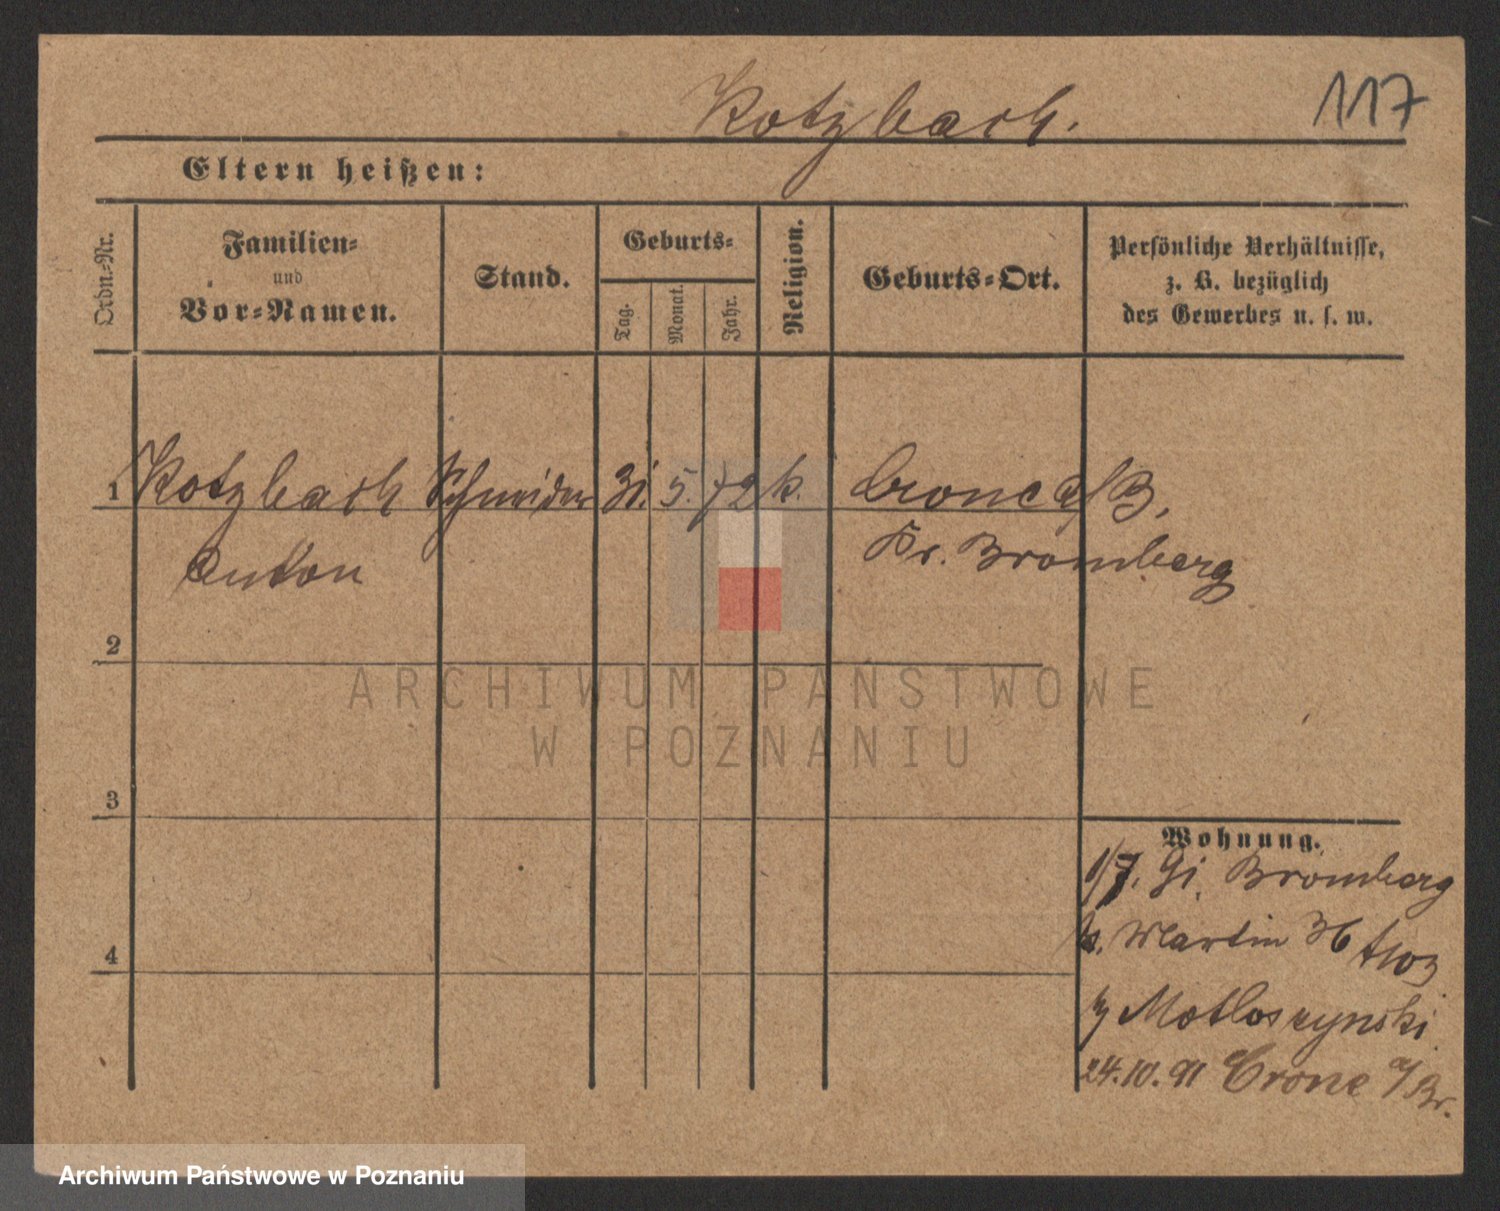 Kotzbach.
117
Eltern heißen:
Ordn=Nr.
Familien=
und
Vor=Namen.
Stand.
Geburts=
Tag.
Monat.
Jahr.
Religion.
Geburts=Ort.
Persönliche Verhältnisse,
z. B. bezüglich
des Gewerbes u. s. w.
1 Kotzbach Schneider 31. 5. 72 k. Crone a/B,
Anton Kr. Bromberg
2
3
4
Wohnung.
1/7. 91. Bromberg
Martin 36
Motloszynski
24.10.91 Crone a/Br.
ARCHIWUM PAŃSTWOWE
W POZNANIU
Archiwum Państwowe w Poznaniu